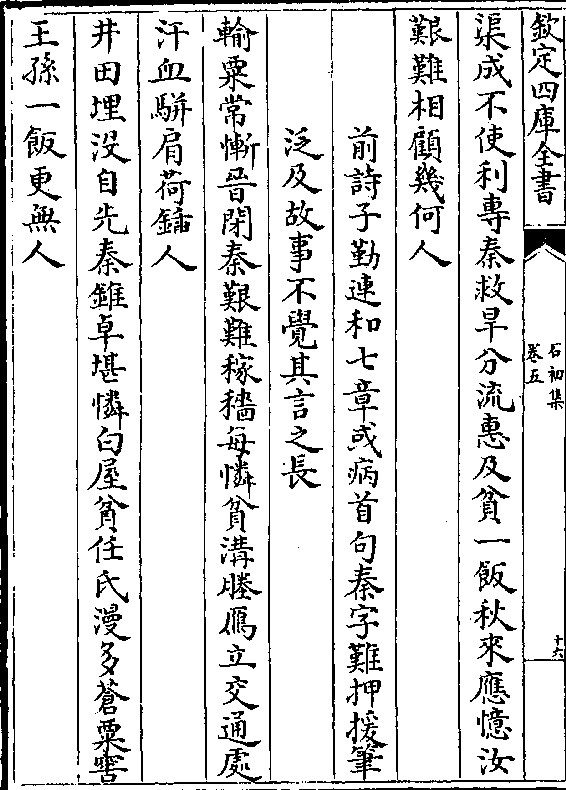 欽定四庫全書
石初集
卷五
十六
渠成不使利專秦救旱分流惠及貧一飯秋來應憶汝
艱難相顧幾何人
前詩子勤連和七章或病首句秦字難押援筆
泛及故事不覺其言之長
輸粟常慚晉閉秦艱難稼穡每憐貧溝塍鴈立交通處
汗血駢肩荷鏽人
井田埋没自先秦錐卓堪憐白屋貧任氏漫多蒼粟窖
王孫一飯更無人